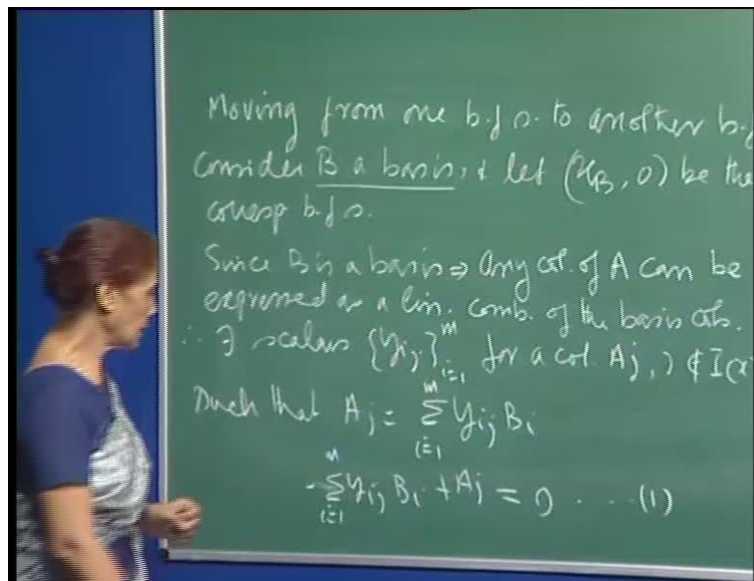 Moving from one b.f.s. to another b.f
Consider B a basis, & let (x_B, 0) be the
corresp b.f.s.
Since B is a basis ⇒ Any col. of A can be
expressed as a lin. comb. of the basis cols.
∴ ∃ scalars {y_ij}_{i=1}^m for a col. A_j, j ∉ I(x
Such that A_j = Σ_{i=1}^m y_ij B_i
-Σ_{i=1}^m y_ij B_i + A_j = 0 . . . (1)